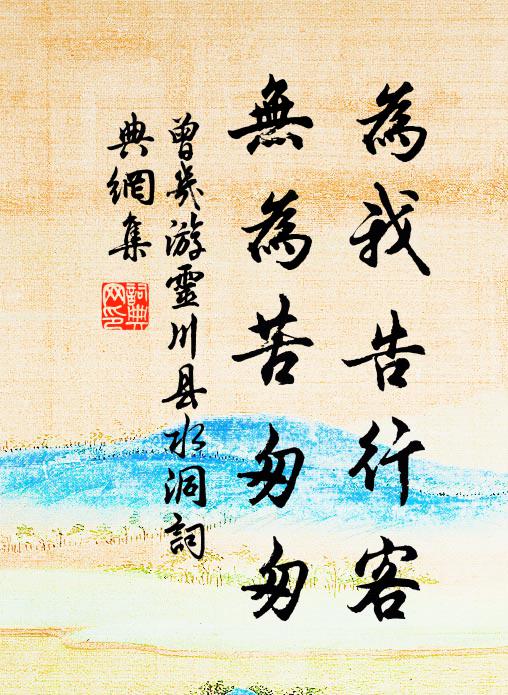 為我告行客
無為苦匆匆
曾幾游靈川县水洞詞
典網集
詞典網印